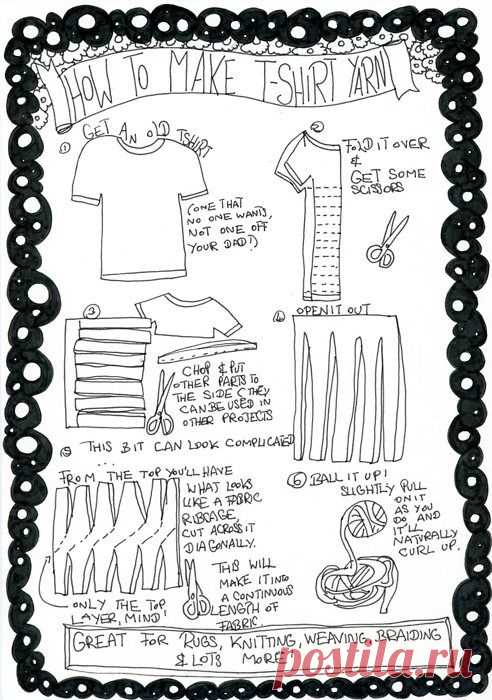 HOW TO MAKE T-SHIRT YARN
① GET AN OLD TSHIRT
(ONE THAT
NO ONE WANTS,
NOT ONE OFF
YOUR DAD!)
②
FOLD IT OVER
&
GET SOME
SCISSORS
③
CHOP & PUT
OTHER PARTS TO
THE SIDE (THEY
CAN BE USED IN
OTHER PROJECTS
④
OPEN IT OUT
⑤ THIS BIT CAN LOOK COMPLICATED
...
FROM THE TOP YOU'LL HAVE
WHAT LOOKS
LIKE A FABRIC
RIBCAGE,
CUT ACROSS IT
DIAGONALLY.
ONLY THE TOP
LAYER, MIND!
THIS WILL
MAKE IT INTO
A CONTINUOUS
LENGTH OF
FABRIC
⑥ BALL IT UP!
SLIGHTLY PULL
ON IT
AS YOU
DO AND
IT'LL
NATURALLY
CURL UP.
GREAT FOR RUGS, KNITTING, WEAVING, BRAIDING
& LOTS MORE!
postila.ru